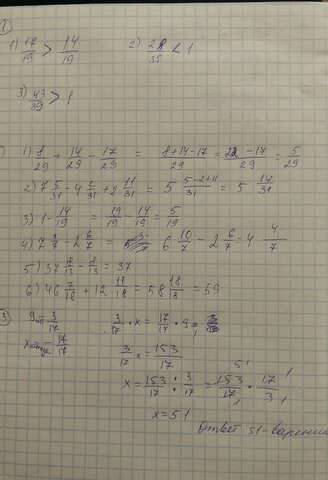 1
1) 17/19 > 14/19 2) 28/35 < 1
3) 43/39 > 1
1) 8/29 + 14/29 - 17/29 = 8+14-17/29 = 22-17/29 = 5/29
2) 7 5/31 - 4 2/31 + 2 11/31 = 5 5-2+11/31 = 5 14/31
3) 1 - 14/19 = 19/19 - 14/19 = 5/19
4) 7 3/7 - 2 6/7 = 6 10/7 - 2 6/7 = 4 4/7
6) 46 7/18 + 12 11/18 = 58 18/18 = 59
3
9 - 3/17 3/17 · x = 17/17 · 9
x - 17/17 3/17 x = 153/17
x = 153/17 : 3/17 = 153/17 · 17/3
x = 51
Ответ 51-